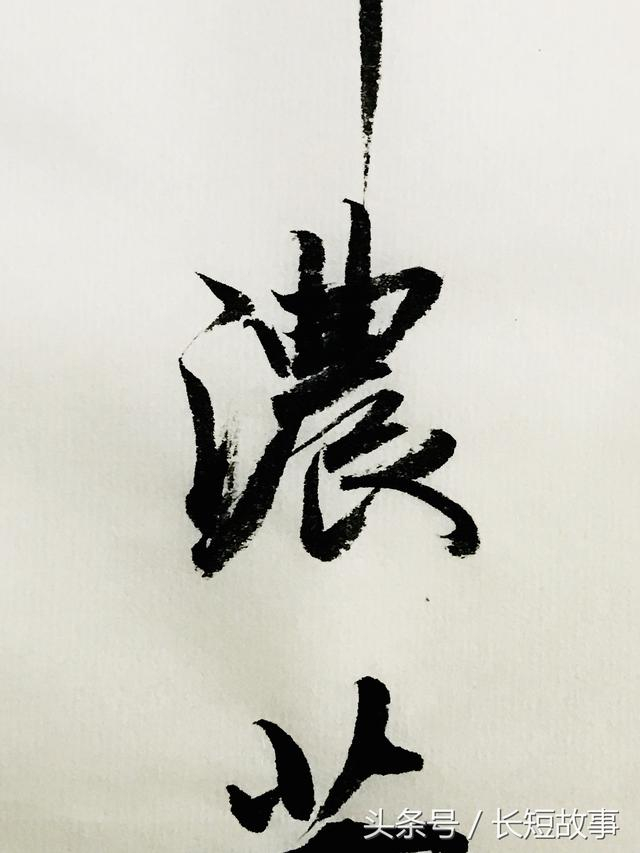 濃
头条号 / 长短故事